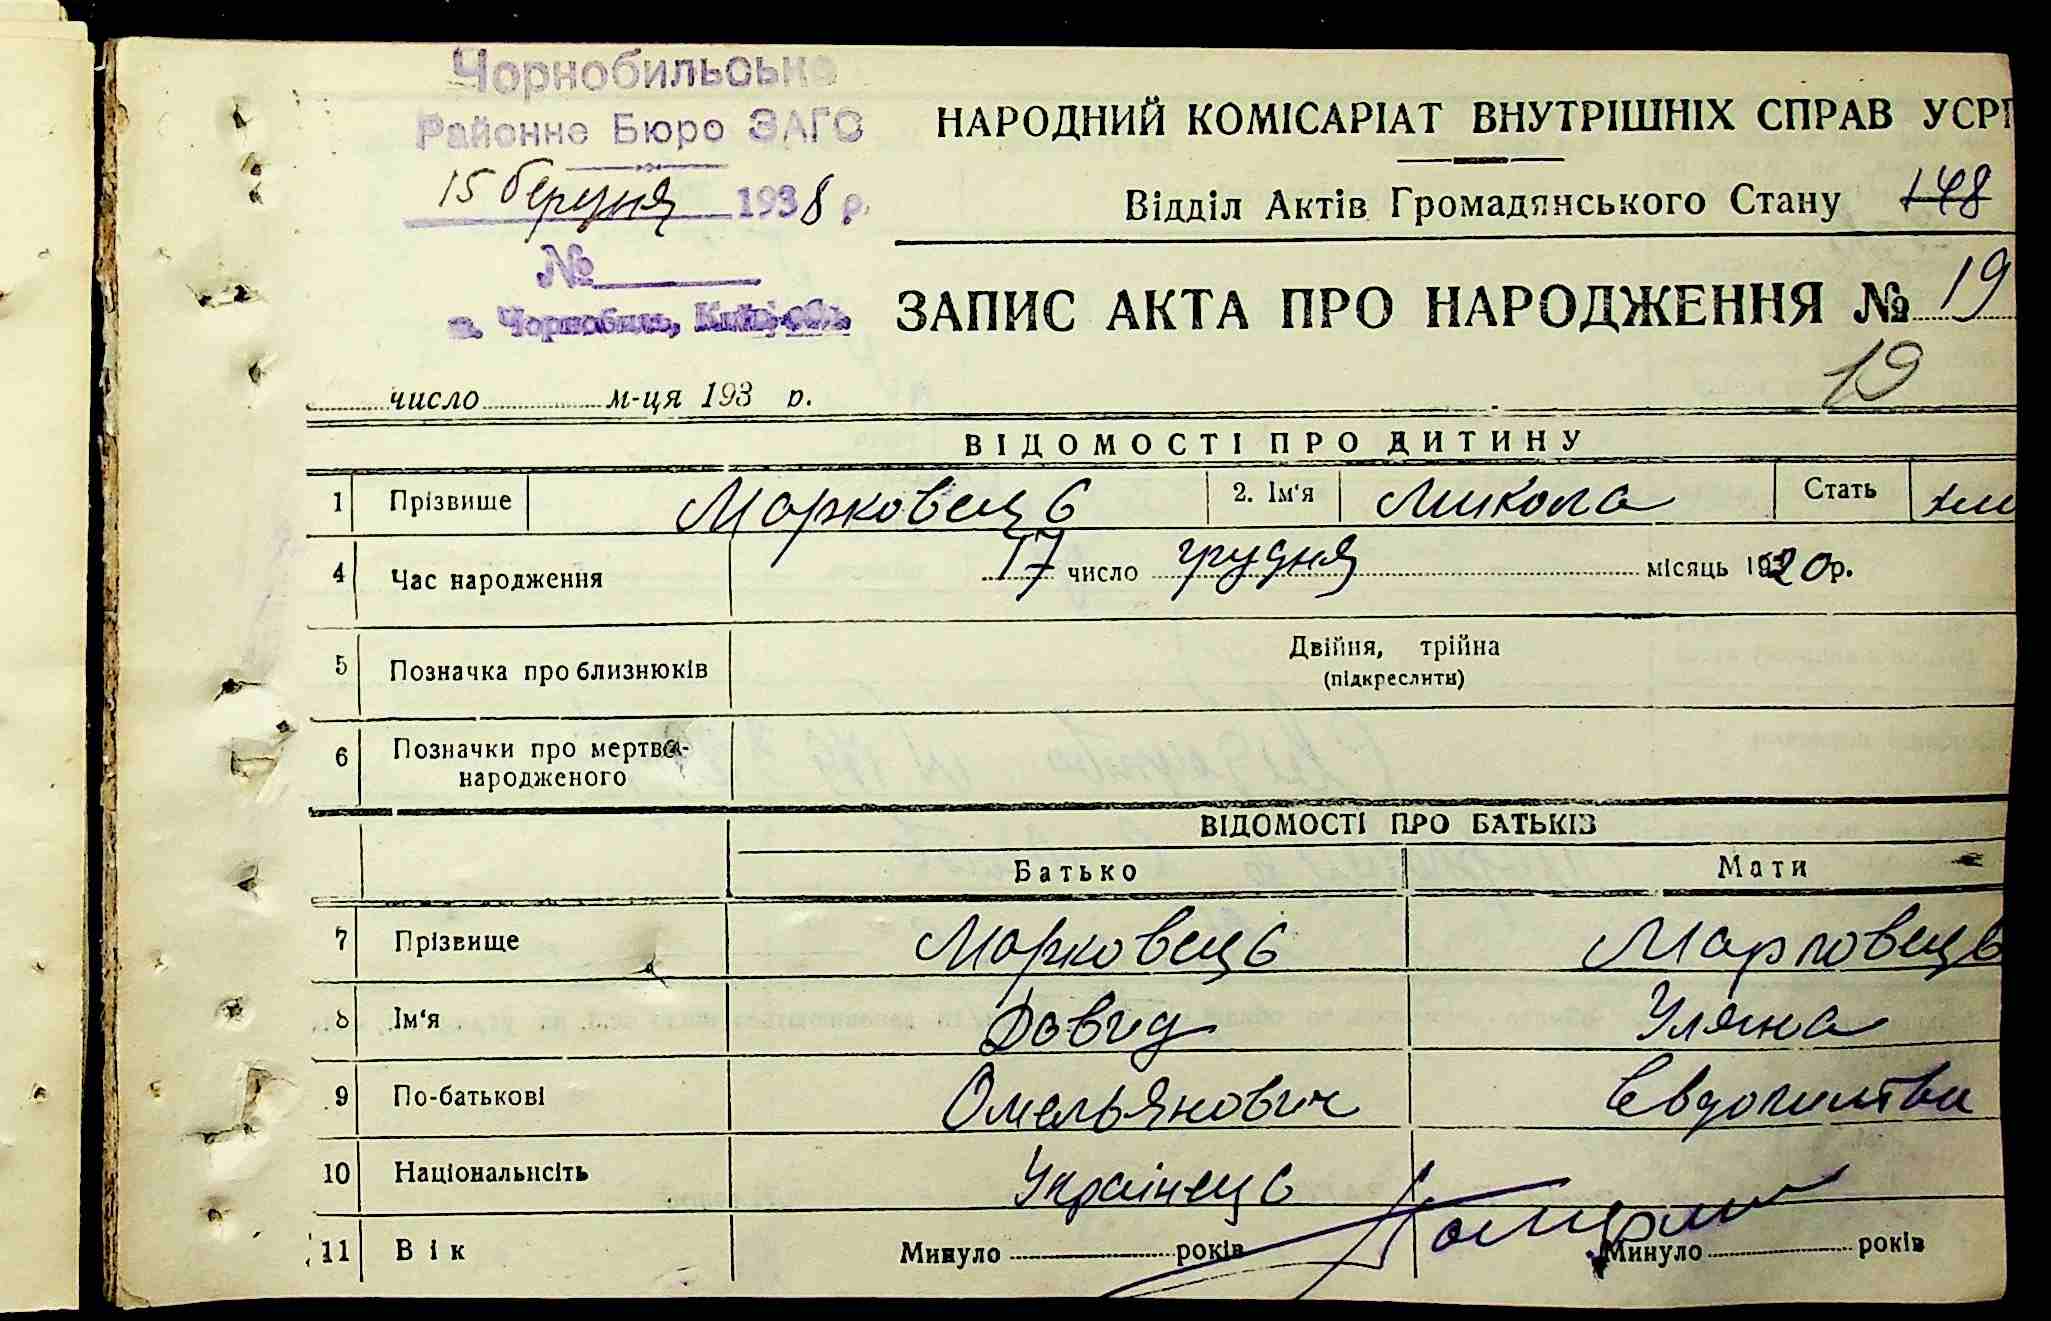 Чорнобильське
Районне Бюро ЗАГС
15 березня 1938 р.
№
м. Чорнобиль, Київ. обл.
НАРОДНИЙ КОМІСАРІАТ ВНУТРІШНІХ СПРАВ УСРР
Відділ Актів Громадянського Стану 148
ЗАПИС АКТА ПРО НАРОДЖЕННЯ № 19
19
число м-ця 193 р.
ВІДОМОСТІ ПРО ДИТИНУ
1 Прізвище Марковець 2. Ім'я Микола Стать хло
4 Час народження 17 число грудня місяць 1920 р.
5 Позначка про близнюків Двійня, трійна
(підкреслити)
6 Позначки про мертво-
народженого
ВІДОМОСТІ ПРО БАТЬКІВ
Батько Мати
7 Прізвище Марковець Марковець
8 Ім'я Довид Уляна
9 По-батькові Омельянович
10 Національність Українець
11 Вік Минуло років Минуло років